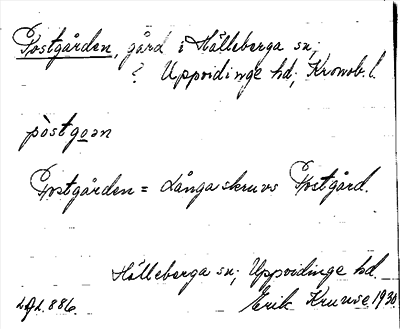 Postgården, gård i Hälleberga sn;
? Uppvidinge hd; Kronob. l.
pòstgoan
Postgården = Långaskruvs Postgård.
Hälleberga sn; Uppvidinge hd.
886. Erik Kruuse 1930